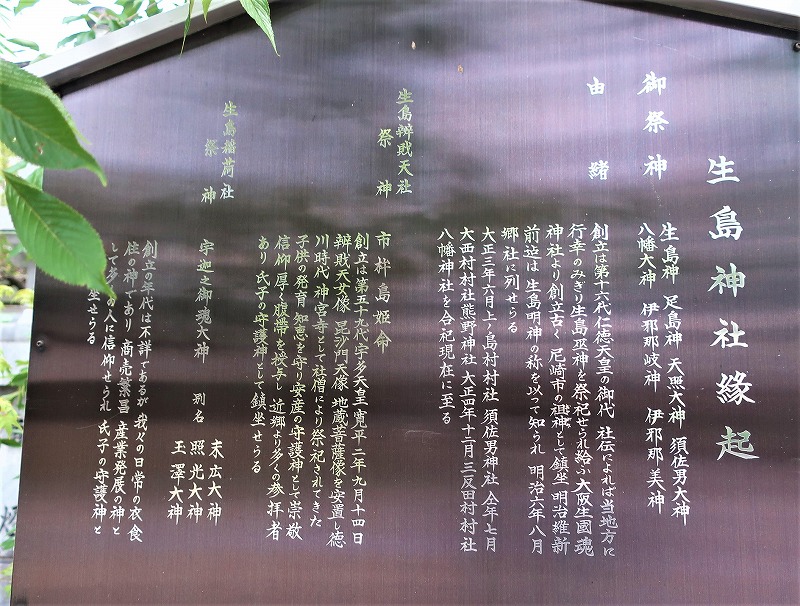 生島神社縁起
御祭神
生島神 足島神 天照大神 須佐男大神
八幡大神 伊邪那岐神 伊邪那美神
由緒
創立は第十六代仁徳天皇の御代 社伝によれば当地方に
行幸のみぎり生島巫神を祭祀せられ給ふ大阪生國魂
神社より創立古く 尼崎市の祖神として鎮坐 明治維新
前迠は生島明神の称を以って知られ 明治六年八月
郷社に列せらる
大正三年六月上ノ島村村社 須佐男神社 仝年七月
大西村村社熊野神社 大正四年十二月三反田村村社
八幡神社を合祀現在に至る
生島辨戝天社
祭神
市杵島姫命
創立は第五十九代宇多天皇寛平二年九月十四日
辨戝天女像 毘沙門天像 地蔵菩薩像を安置し徳
川時代 神宮寺として社僧により祭祀されてきた
子供の発育 知恵を守り安産の守護神として崇敬
信仰厚く腹帯を授与し 近郷より多くの参拝者
あり 氏子の守護神として鎮坐せらる
生島稲荷社
祭神
宇迦之御魂大神
別名
末広大神
照光大神
玉澤大神
創立の年代は不詳であるが 我々の日常の衣食
住の神であり 商売繁昌 産業発展の神と
して多くの人に信仰せられ 氏子の守護神と
坐せらる